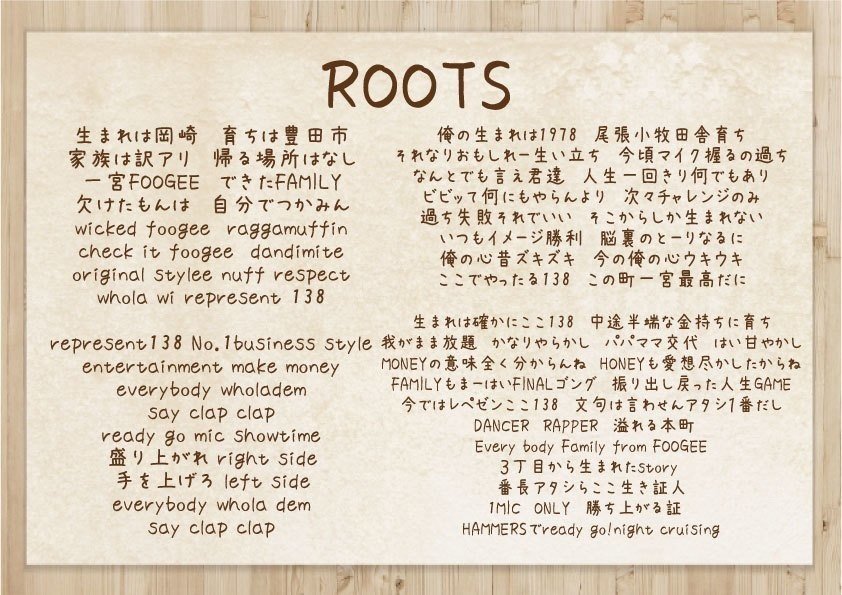 ROOTS
生まれは岡崎　育ちは豊田市
家族は訳アリ　帰る場所はなし
一宮FOOGEE　できたFAMILY
欠けたもんは　自分でつかみん
wicked foogee　raggamuffin
check it foogee　dandimite
original stylee nuff respect
whola wi represent 138
represent138 No.1business style
entertainment make money
everybody wholadem
say clap clap
ready go mic showtime
盛り上がれ right side
手を上げろ left side
everybody whola dem
say clap clap
俺の生まれは1978　尾張小牧田舎育ち
それなりおもしれー生い立ち　今頃マイク握るの過ち
なんとでも言え君達　人生一回きり何でもあり
ビビッて何にもやらんより　次々チャレンジのみ
過ち失敗それでいい　そこからしか生まれない
いつもイメージ勝利　脳裏のとーりなるに
俺の心昔ズキズキ　今の俺の心ウキウキ
ここでやったる138　この町一宮最高だに
生まれは確かにここ138　中途半端な金持ちに育ち
我がまま放題　かなりやらかし　パパママ交代　はい甘やかし
MONEYの意味全く分からんね　HONEYも愛想尽かしたからね
FAMILYもまーはいFINALゴング　振り出し戻った人生GAME
今ではレペゼンここ138　文句は言わせんアタシ1番だし
DANCER　RAPPER　溢れる本町
Every body Family from FOOGEE
３丁目から生まれたstory
番長アタシらここ生き証人
1MIC　ONLY　勝ち上がる証
HAMMERSでready go!night cruising